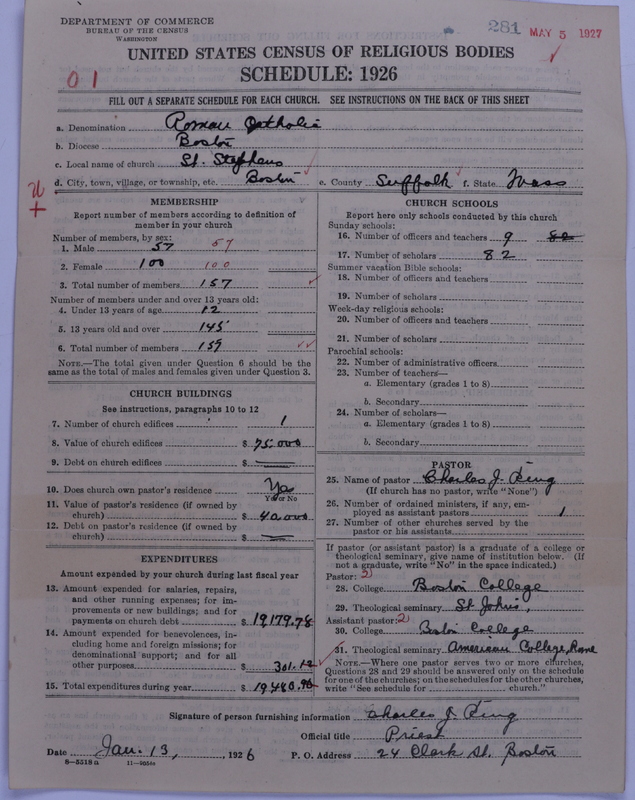 DEPARTMENT OF COMMERCE
BUREAU OF THE CENSUS
WASHINGTON
281 MAY 5 1927
UNITED STATES CENSUS OF RELIGIOUS BODIES
SCHEDULE: 1926
0 1
FILL OUT A SEPARATE SCHEDULE FOR EACH CHURCH. SEE INSTRUCTIONS ON THE BACK OF THIS SHEET
a. Denomination Roman Catholic
b. Diocese Boston
c. Local name of church St. Stephens
d. City, town, village, or township, etc. Boston e. County Suffolk f. State Mass
MEMBERSHIP
Report number of members according to definition of
member in your church
Number of members, by sex:
1. Male 57 57
2. Female 100 100
3. Total number of members 157
Number of members under and over 13 years old:
4. Under 13 years of age 12
5. 13 years old and over 145
6. Total number of members
NOTE.—The total given under Question 6 should be the
same as the total of males and females given under Question 3.
CHURCH BUILDINGS
See instructions, paragraphs 10 to 12
7. Number of church edifices 1
8. Value of church edifices $ 75.000
9. Debt on church edifices $ —
10. Does church own pastor's residence Yes
Yes or No
11. Value of pastor's residence (if owned by
church) $ 40,000
12. Debt on pastor's residence (if owned by
church) $ —
EXPENDITURES
Amount expended by your church during last fiscal year
13. Amount expended for salaries, repairs,
and other running expenses; for im-
provements or new buildings; and for
payments on church debt $ 19179.78
14. Amount expended for benevolences, in-
cluding home and foreign missions; for
denominational support; and for all
other purposes $ 301.12
15. Total expenditures during year $ 19480.90
CHURCH SCHOOLS
Report here only schools conducted by this church
Sunday schools:
16. Number of officers and teachers 9 82
17. Number of scholars 82
Summer vacation Bible schools:
18. Number of officers and teachers
19. Number of scholars
Week-day religious schools:
20. Number of officers and teachers
21. Number of scholars
Parochial schools:
22. Number of administrative officers
23. Number of teachers—
a. Elementary (grades 1 to 8)
b. Secondary
24. Number of scholars—
a. Elementary (grades 1 to 8)
b. Secondary
PASTOR
25. Name of pastor Charles J. Ring
(If church has no pastor, write "None")
26. Number of ordained ministers, if any, em-
ployed as assistant pastors 1
27. Number of other churches served by the
pastor or his assistants
If pastor (or assistant pastor) is a graduate of a college or
theological seminary, give name of institution below. (If
not a graduate, write "No" in the space indicated.)
Pastor: 2)
28. College Boston College
29. Theological seminary St Johns,
Assistant pastor: 2)
30. College Boston College
31. Theological seminary American College, Rome
NOTE.—Where one pastor serves two or more churches,
Questions 28 and 29 should be answered only on the schedule
for one of the churches; on the schedules for the other churches,
write "See schedule for church."
Signature of person furnishing information Charles J. Ring
Official title Priest
Date Jan. 13, 1926 P. O. Address 24 Clark St. Boston
8—5518a 11—9054a